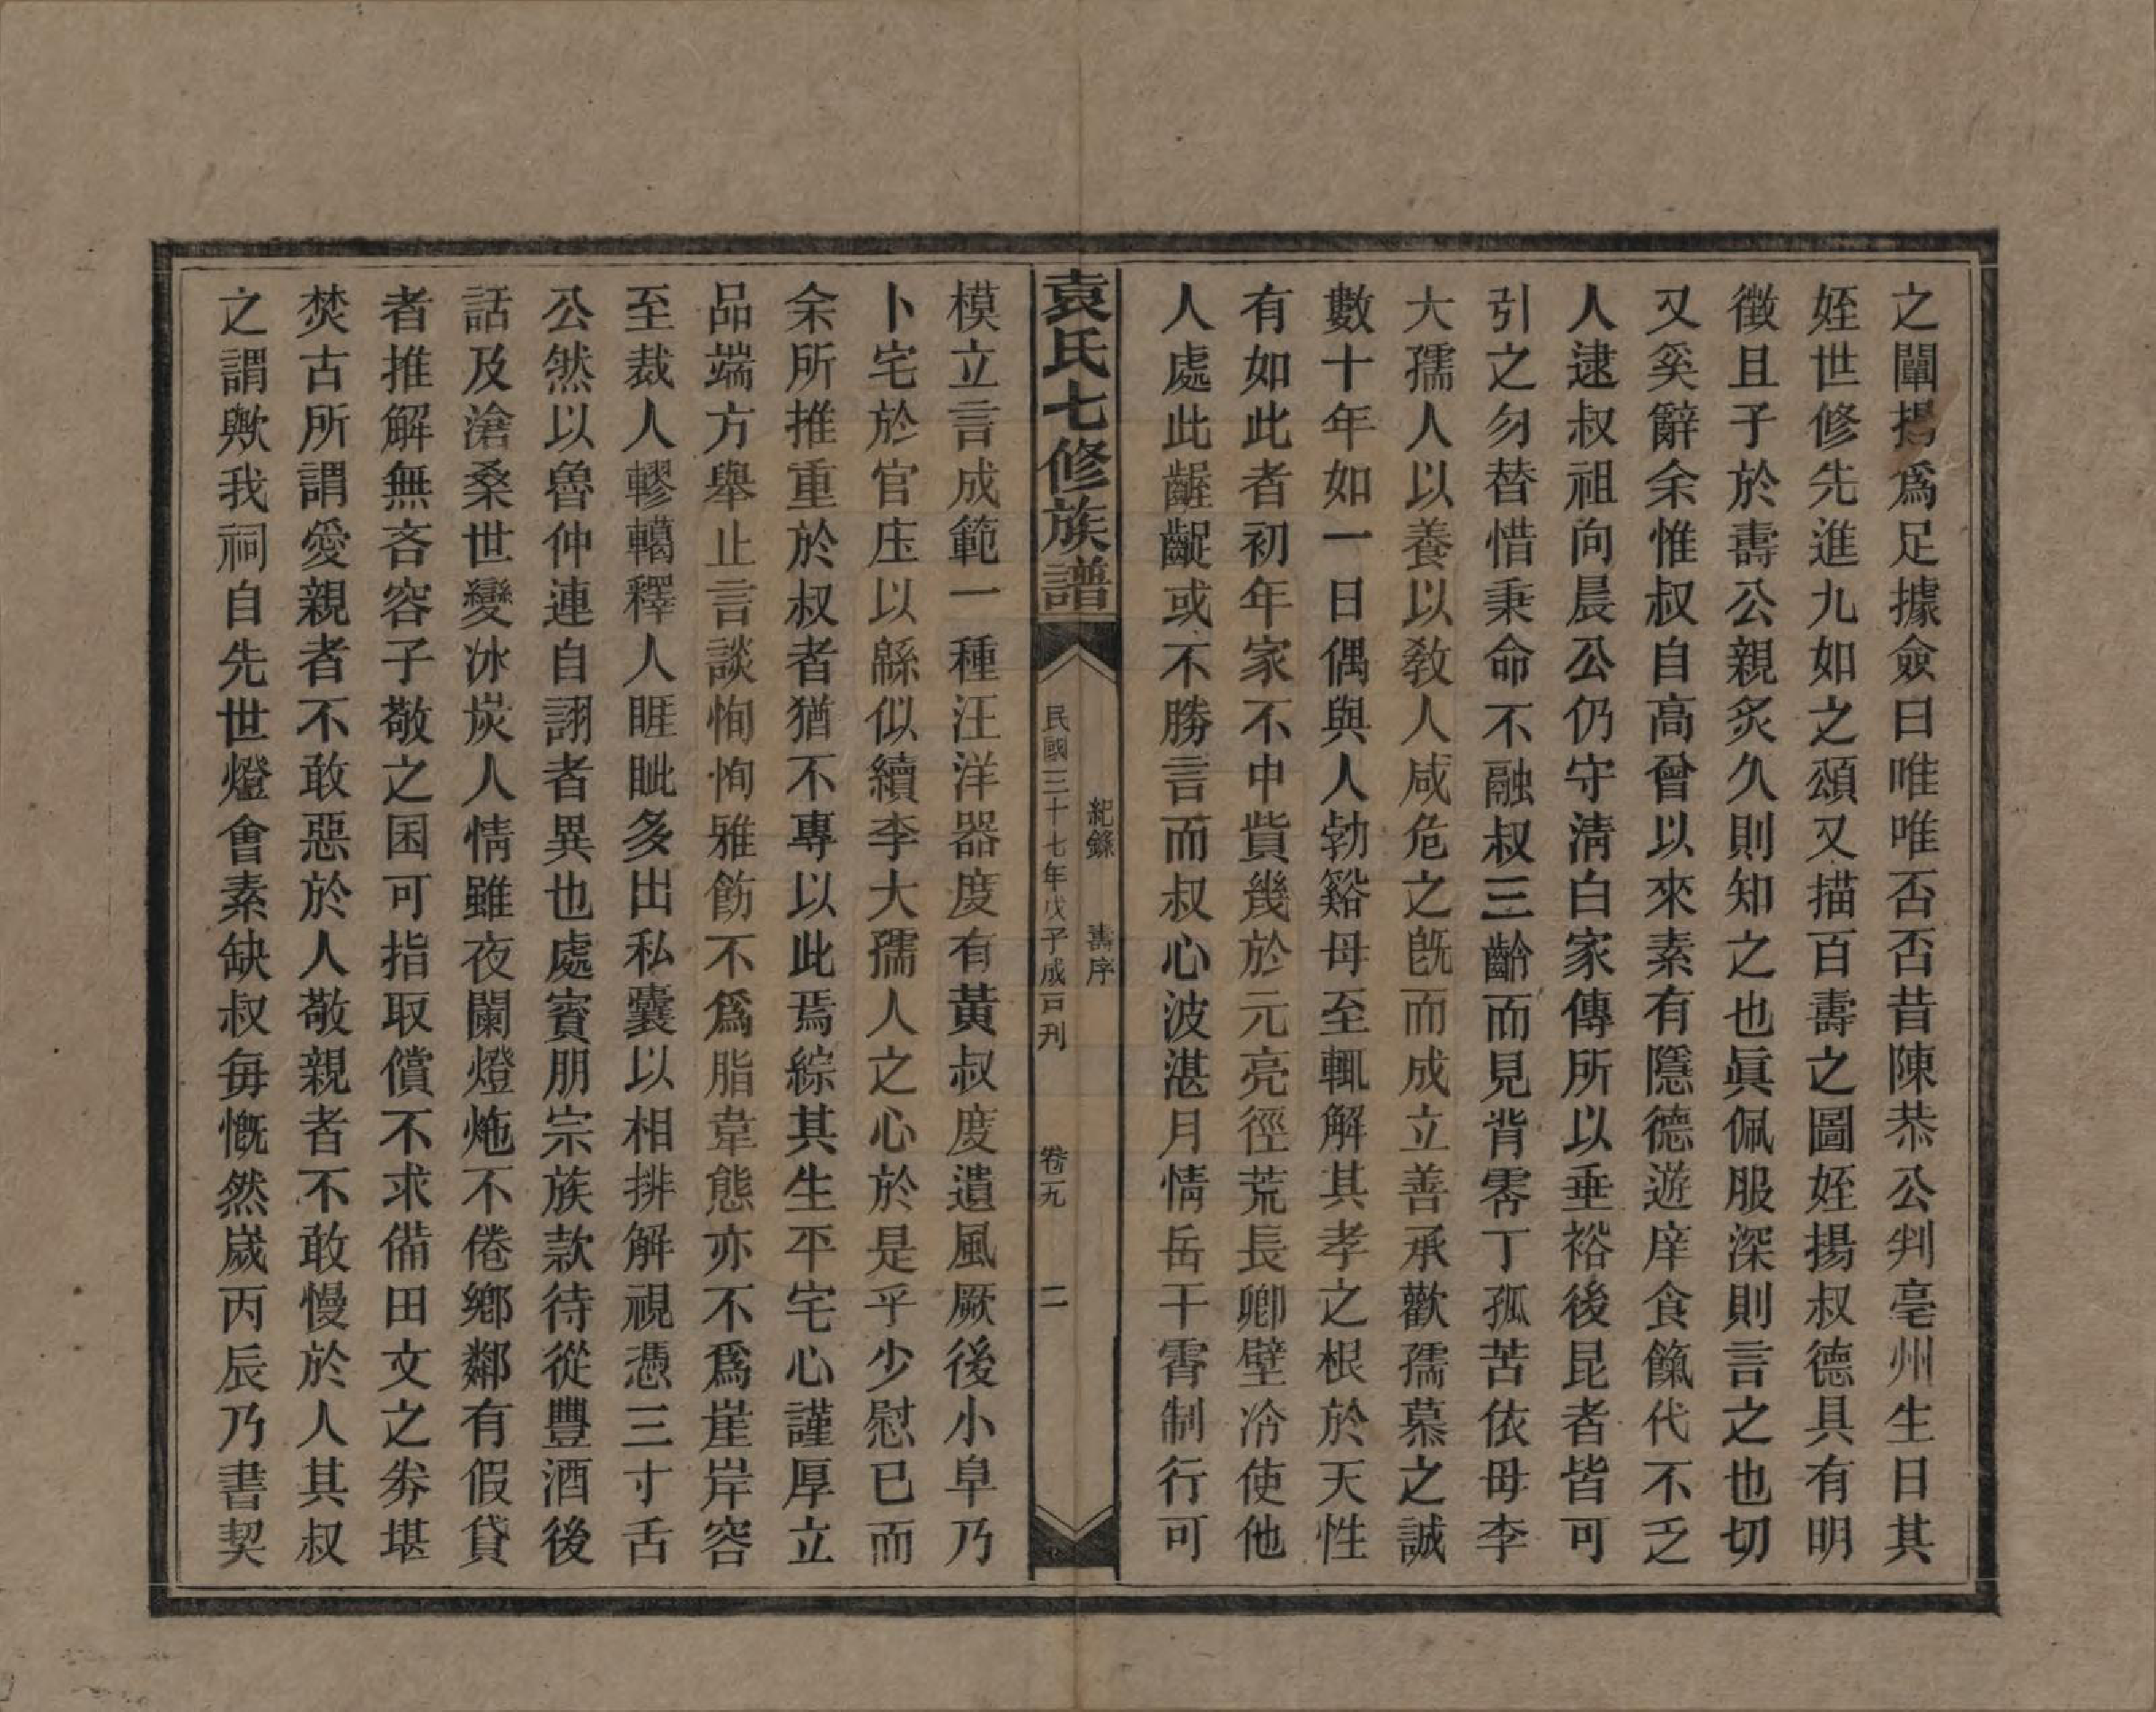 之闡揚爲足據僉曰唯唯否否昔陳恭公判亳州生日其
姪世修先進九如之頌又描百壽之圖姪揚叔德具有明
徵且子於壽公親炙久則知之也眞佩服深則言之也切
又奚辭余惟叔自高曾以來素有隱德遊庠食餼代不乏
人逮叔祖向晨公仍守淸白家傳所以垂裕後昆者皆可
引之勿替惜秉命不融叔三齡而見背零丁孤苦依毋李
大孺人以養以敎人咸危之旣而成立善承歡孺慕之誠
數十年如一日偶與人勃谿母至輒解其孝之根於天性
有如此者初年家不中貲幾於元亮徑荒長卿壁冷使他
人處此齷齪或不勝言而叔心波湛月情岳干霄制行可
袁氏七修族譜
紀錄 壽序
民國三十七年戊子成吉刊 卷九 二
模立言成範一種汪洋器度有黃叔度遺風厥後小阜乃
卜宅於官庄以緜似續李大孺人之心於是乎少慰已而
余所推重於叔者猶不專以此焉綜其生平宅心謹厚立
品端方舉止言談恂恂雅飭不爲脂韋態亦不爲崖岸容
至裁人轇轕釋人睚眦多出私囊以相排解視憑三寸舌
公然以魯仲連自詡者異也處賓朋宗族款待從豐酒後
話及滄桑世變冰炭人情雖夜闌燈灺不倦鄕鄰有假貸
者推解無吝容子敬之囷可指取償不求備田文之券堪
焚古所謂愛親者不敢惡於人敬親者不敢慢於人其叔
之謂歟我祠自先世燈會素缺叔每慨然歲丙辰乃書契